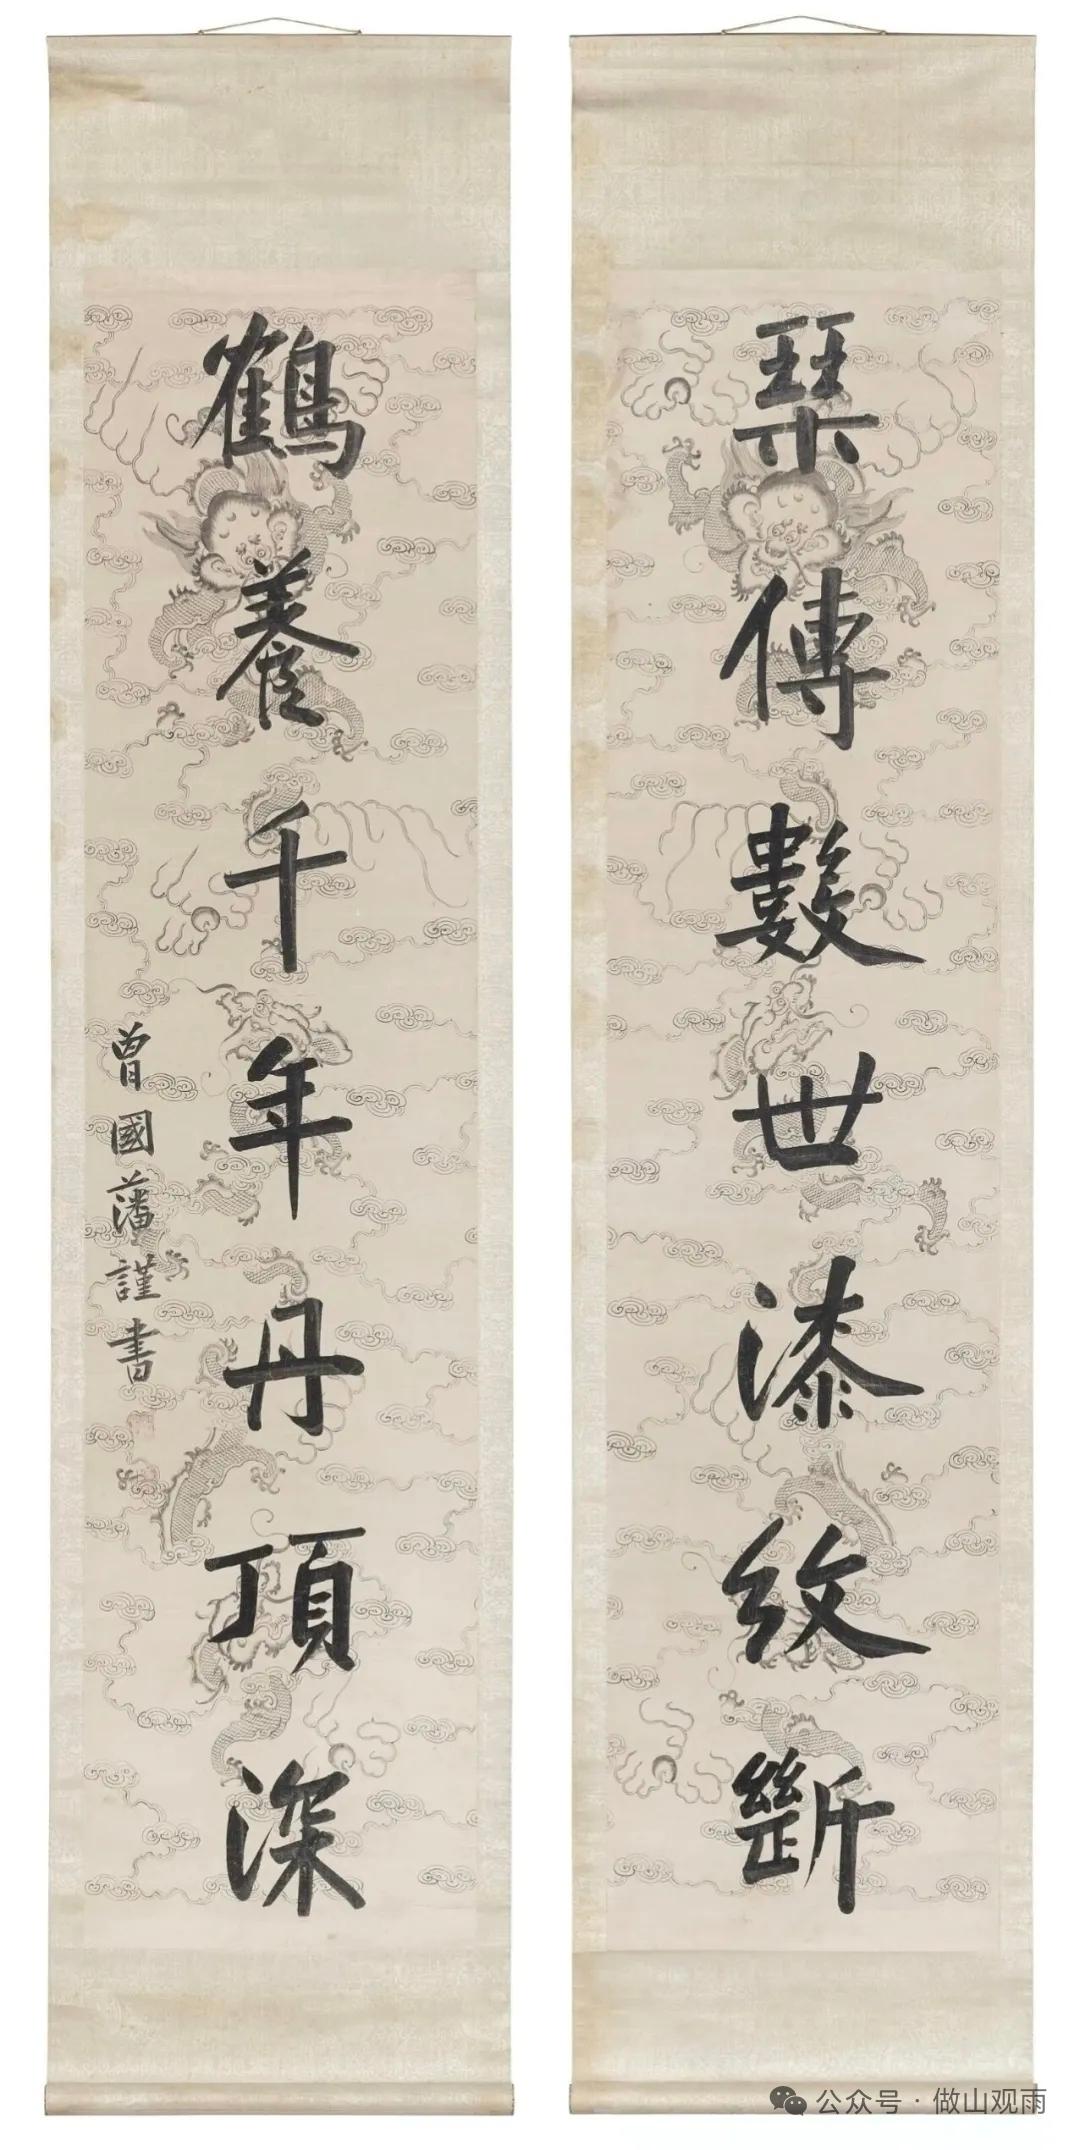 琹傳數世漆紋斷
鶴養千年丹頂深
曾國藩謹書
公众号 · 做山观雨